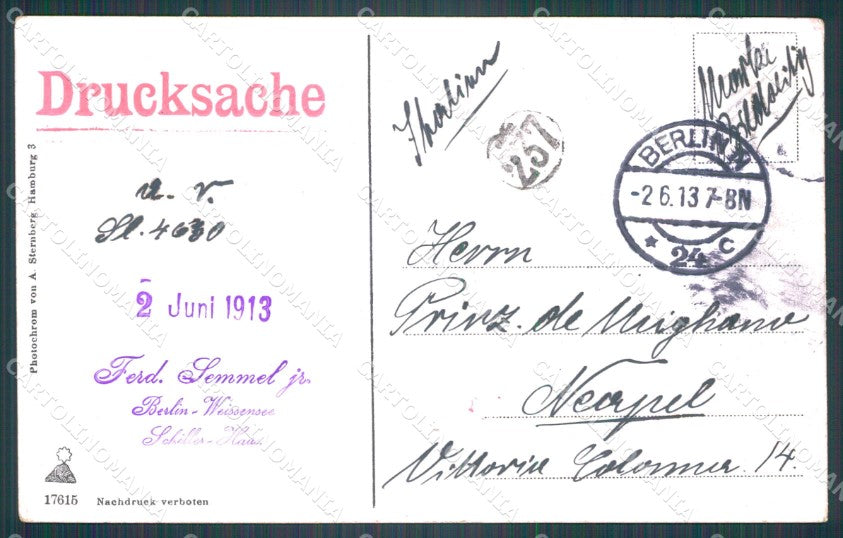 Drucksache
Photochrom von A. Sternberg, Hamburg 3
a. v.
Sl. 4630
2 Juni 1913
Ferd. Semmel jr.
Berlin-Weissensee
Schiller-Haus
17615 Nachdruck verboten
Italien
257
Marke
BERLIN N
-2 6.13 7-8N
* 24 c
Herrn
Prinz. de Meighano
Neapel
Vittoria Colonna 14.
CARTOLINOMANIA